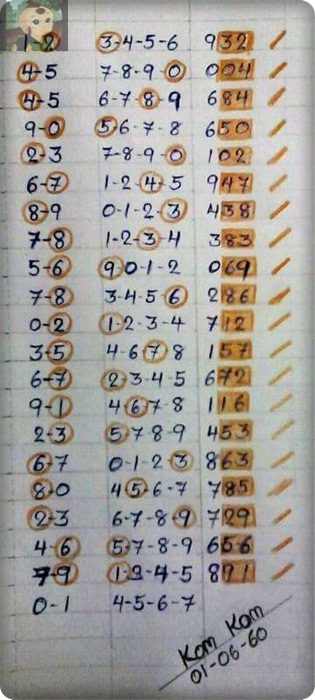 1-2 3-4-5-6 932
4-5 7-8-9-0 004
4-5 6-7-8-9 684
9-0 5-6-7-8 650
2-3 7-8-9-0 102
6-7 1-2-4-5 947
8-9 0-1-2-3 438
7-8 1-2-3-4 383
5-6 9-0-1-2 069
7-8 3-4-5-6 286
0-2 1-2-3-4 712
3-5 4-6-7-8 157
6-7 2-3-4-5 672
9-1 4-6-7-8 116
2-3 5-7-8-9 453
6-7 0-1-2-3 863
8-0 4-5-6-7 785
2-3 6-7-8-9 729
4-6 5-7-8-9 656
7-9 1-2-4-5 891
0-1 4-5-6-7
Kom Kom
01-06-60